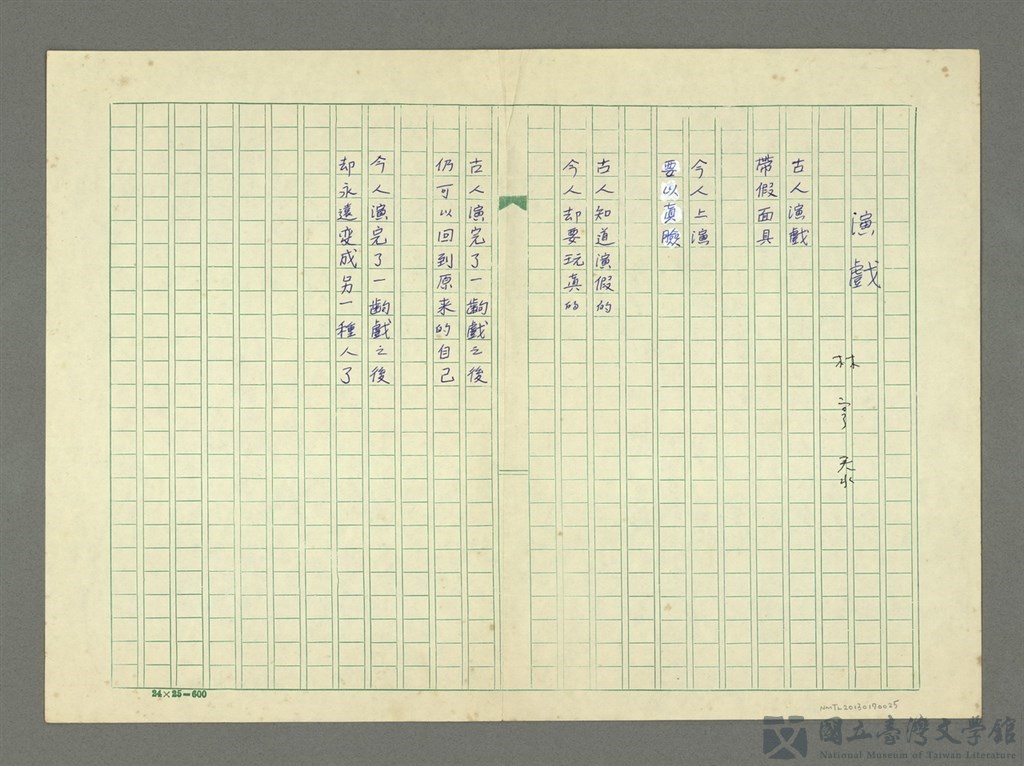 演戲
林亨泰
古人演戲
帶假面具
今人上演
要以真臉
古人知道演假的
今人却要玩真的
古人演完了一齣戲之後
仍可以回到原来的自己
今人演完了一齣戲之後
却永遠变成另一種人了
24×25=600
NMTL20130170025
國立臺灣文學館
National Museum of Taiwan Literature